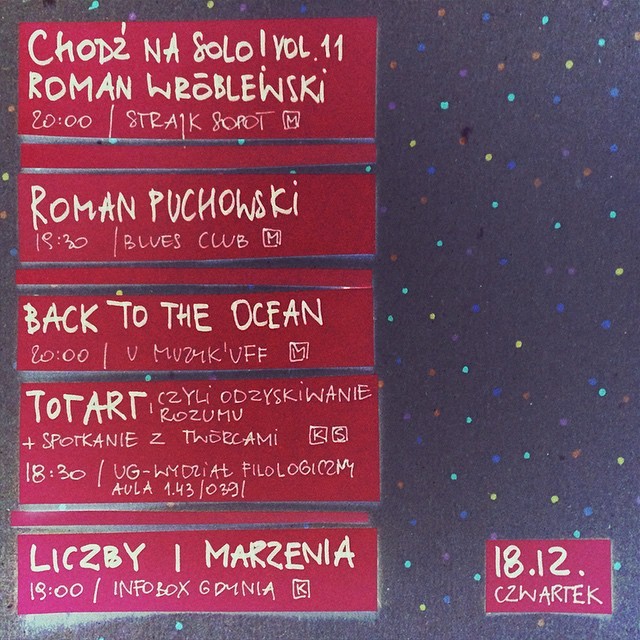 CHODŹ NA SOLO! VOL. 11
ROMAN WRÓBLEWSKI
20:00 / STRAJK SOPOT M
ROMAN PUCHOWSKI
19:30 / BLUES CLUB M
BACK TO THE OCEAN
20:00 / U MUZYK'UFF M
TOTART, CZYLI ODZYSKIWANIE
ROZUMU
+ SPOTKANIE Z TWÓRCAMI K S
18:30 / UG-WYDZIAŁ FILOLOGICZNY
AULA 1.43 /039/
LICZBY I MARZENIA
19:00 / INFOBOX GDYNIA K
18.12.
CZWARTEK